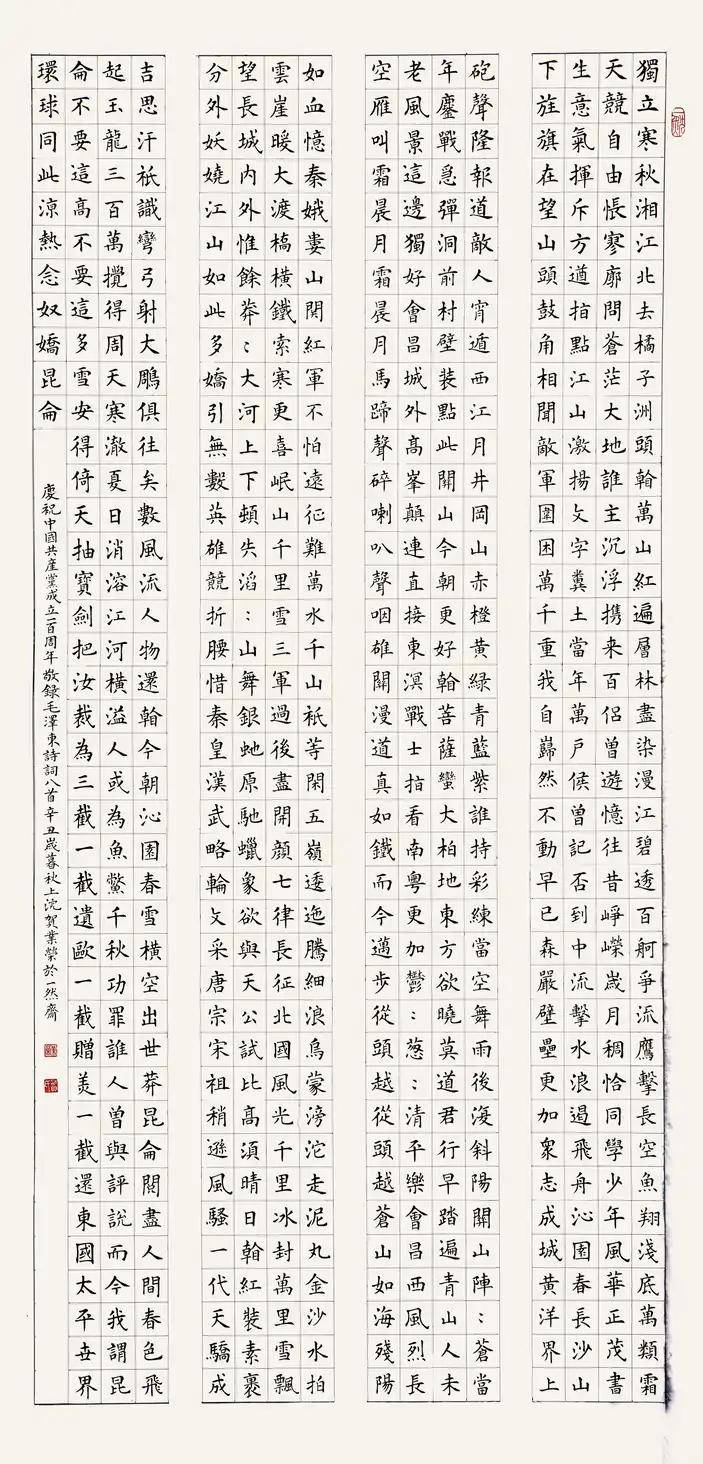 獨立寒秋湘江北去橘子洲頭翰萬山紅遍層林盡染漫江碧透百舸爭流鷹擊長空魚翔淺底萬類霜
天競自由悵寥廓問蒼茫大地誰主沉浮携来百侶曾遊憶往昔崢嶸歲月稠恰同學少年風華正茂書
生意氣揮斥方遒指點江山激揚文字糞土當年萬戶侯曾記否到中流擊水浪遏飛舟沁園春長沙山
下旌旗在望山頭鼓角相聞敵軍圍困萬千重我自巋然不動早已森嚴壁壘更加衆志成城黄洋界上
砲聲隆報道敵人宵遁西江月井岡山赤橙黃綠青藍紫誰持彩練當空舞雨後復斜陽關山陣：蒼當
年鏖戰急彈洞前村壁裝點此關山今朝更好翰菩薩蠻大柏地東方欲曉莫道君行早踏遍青山人未
老風景這邊獨好會昌城外高峯顛連直接東溟戰士指看南粵更加鬱：葱：清平樂會昌西風烈長
空雁叫霜晨月霜晨月馬蹄聲碎喇叭聲咽雄關漫道真如鐵而今邁步從頭越從頭越蒼山如海殘陽
如血憶秦娥婁山関紅軍不怕遠征難萬水千山祇等閑五嶺逶迤騰細浪烏蒙滂沱走泥丸金沙水拍
雲崖暖大渡橋橫鐵索寒更喜岷山千里雪三軍過後盡開顏七律長征北國風光千里冰封萬里雪飄
望長城内外惟餘莽：大河上下頓失滔：山舞銀虵原馳蠟象欲與天公試比高須晴日翰紅裝素裹
分外妖嬈江山如此多嬌引無數英雄競折腰惜秦皇漢武略輪文采唐宗宋祖稍遜風騷一代天驕成
吉思汗祇識彎弓射大鵰俱往矣數風流人物還翰今朝沁園春雪橫空出世莽昆侖閱盡人間春色飛
起玉龍三百萬攪得周天寒澈夏日消溶江河橫溢人或為魚鱉千秋功罪誰人曾與評說而今我謂昆
侖不要這高不要這多雪安得倚天抽寶劍把汝裁為三截一截遺歐一截贈美一截還東國太平世界
環球同此涼熱念奴嬌昆侖
慶祝中國共産黨成立一百周年敬錄毛澤東詩詞八首辛丑歲暮秋上浣賀業榮於一然齋